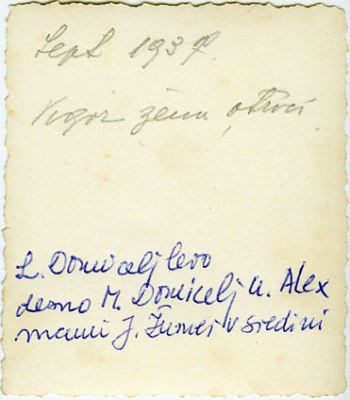 Sept 1937.
žena, otroci
L. Domicelj levo
desno M. Domicelj u. Alex
mami J. Žumej v sredini